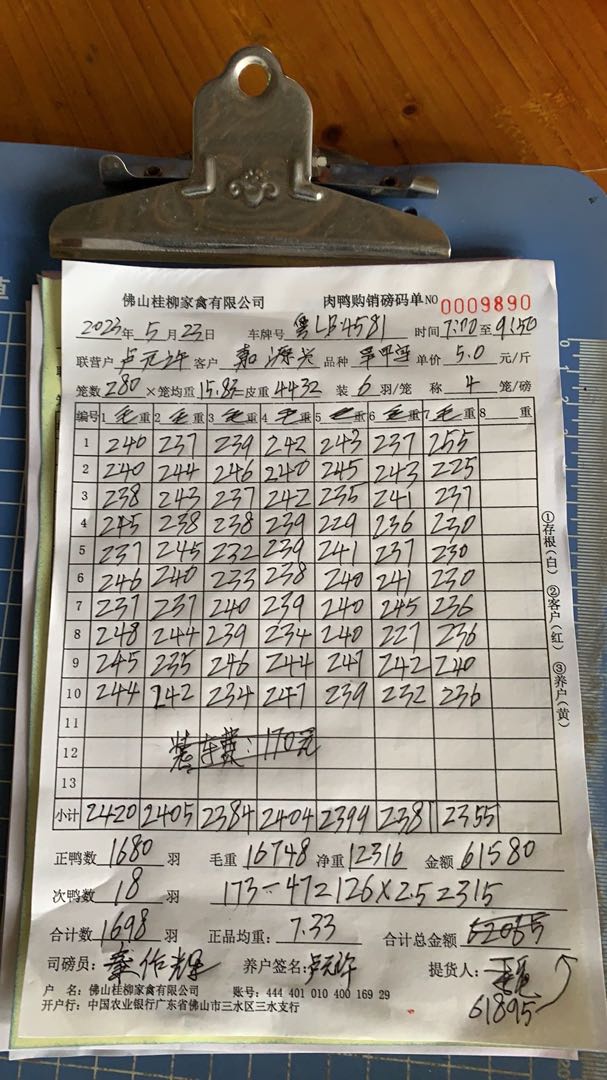 佛山桂柳家禽有限公司 肉鸭购销磅码单 NO 0009890
2023年 5月23日 车牌号 粤LB4581 时间 7:00至9:50
联营户 卢元许 客户 品种 单价 5.0 元/斤
笼数 280 ×笼均重 15.83 皮重 4432 装 6 羽/笼 称 4 笼/磅
编号 1 毛重 2 毛重 3 毛重 4 毛重 5 毛重 6 毛重 7 毛重 8 重
1 240 237 239 242 243 237 255
2 240 244 246 240 245 243 225
3 238 243 237 242 235 241 237
4 245 238 238 239 229 236 230
5 237 245 232 239 241 237 230
6 246 240 233 238 240 241 230
7 237 237 240 239 240 245 236
8 248 244 239 234 240 227 236
9 245 235 246 244 247 242 240
10 244 242 234 247 239 232 236
11
12 装车费:170元
13
小计 2420 2405 2384 2404 2399 2381 2355
正鸭数 1680 羽 毛重 16748 净重 12316 金额 61580
次鸭数 18 羽 173-47=126×2.5=315
合计数 1698 羽 正品均重: 7.33 合计总金额 62065
司磅员: 养户签名: 卢元许 提货人:
61895
户 名: 佛山桂柳家禽有限公司 账号: 444 401 010 400 169 29
开户行: 中国农业银行广东省佛山市三水区三水支行
①存根(白) ②客户(红) ③养户(黄)